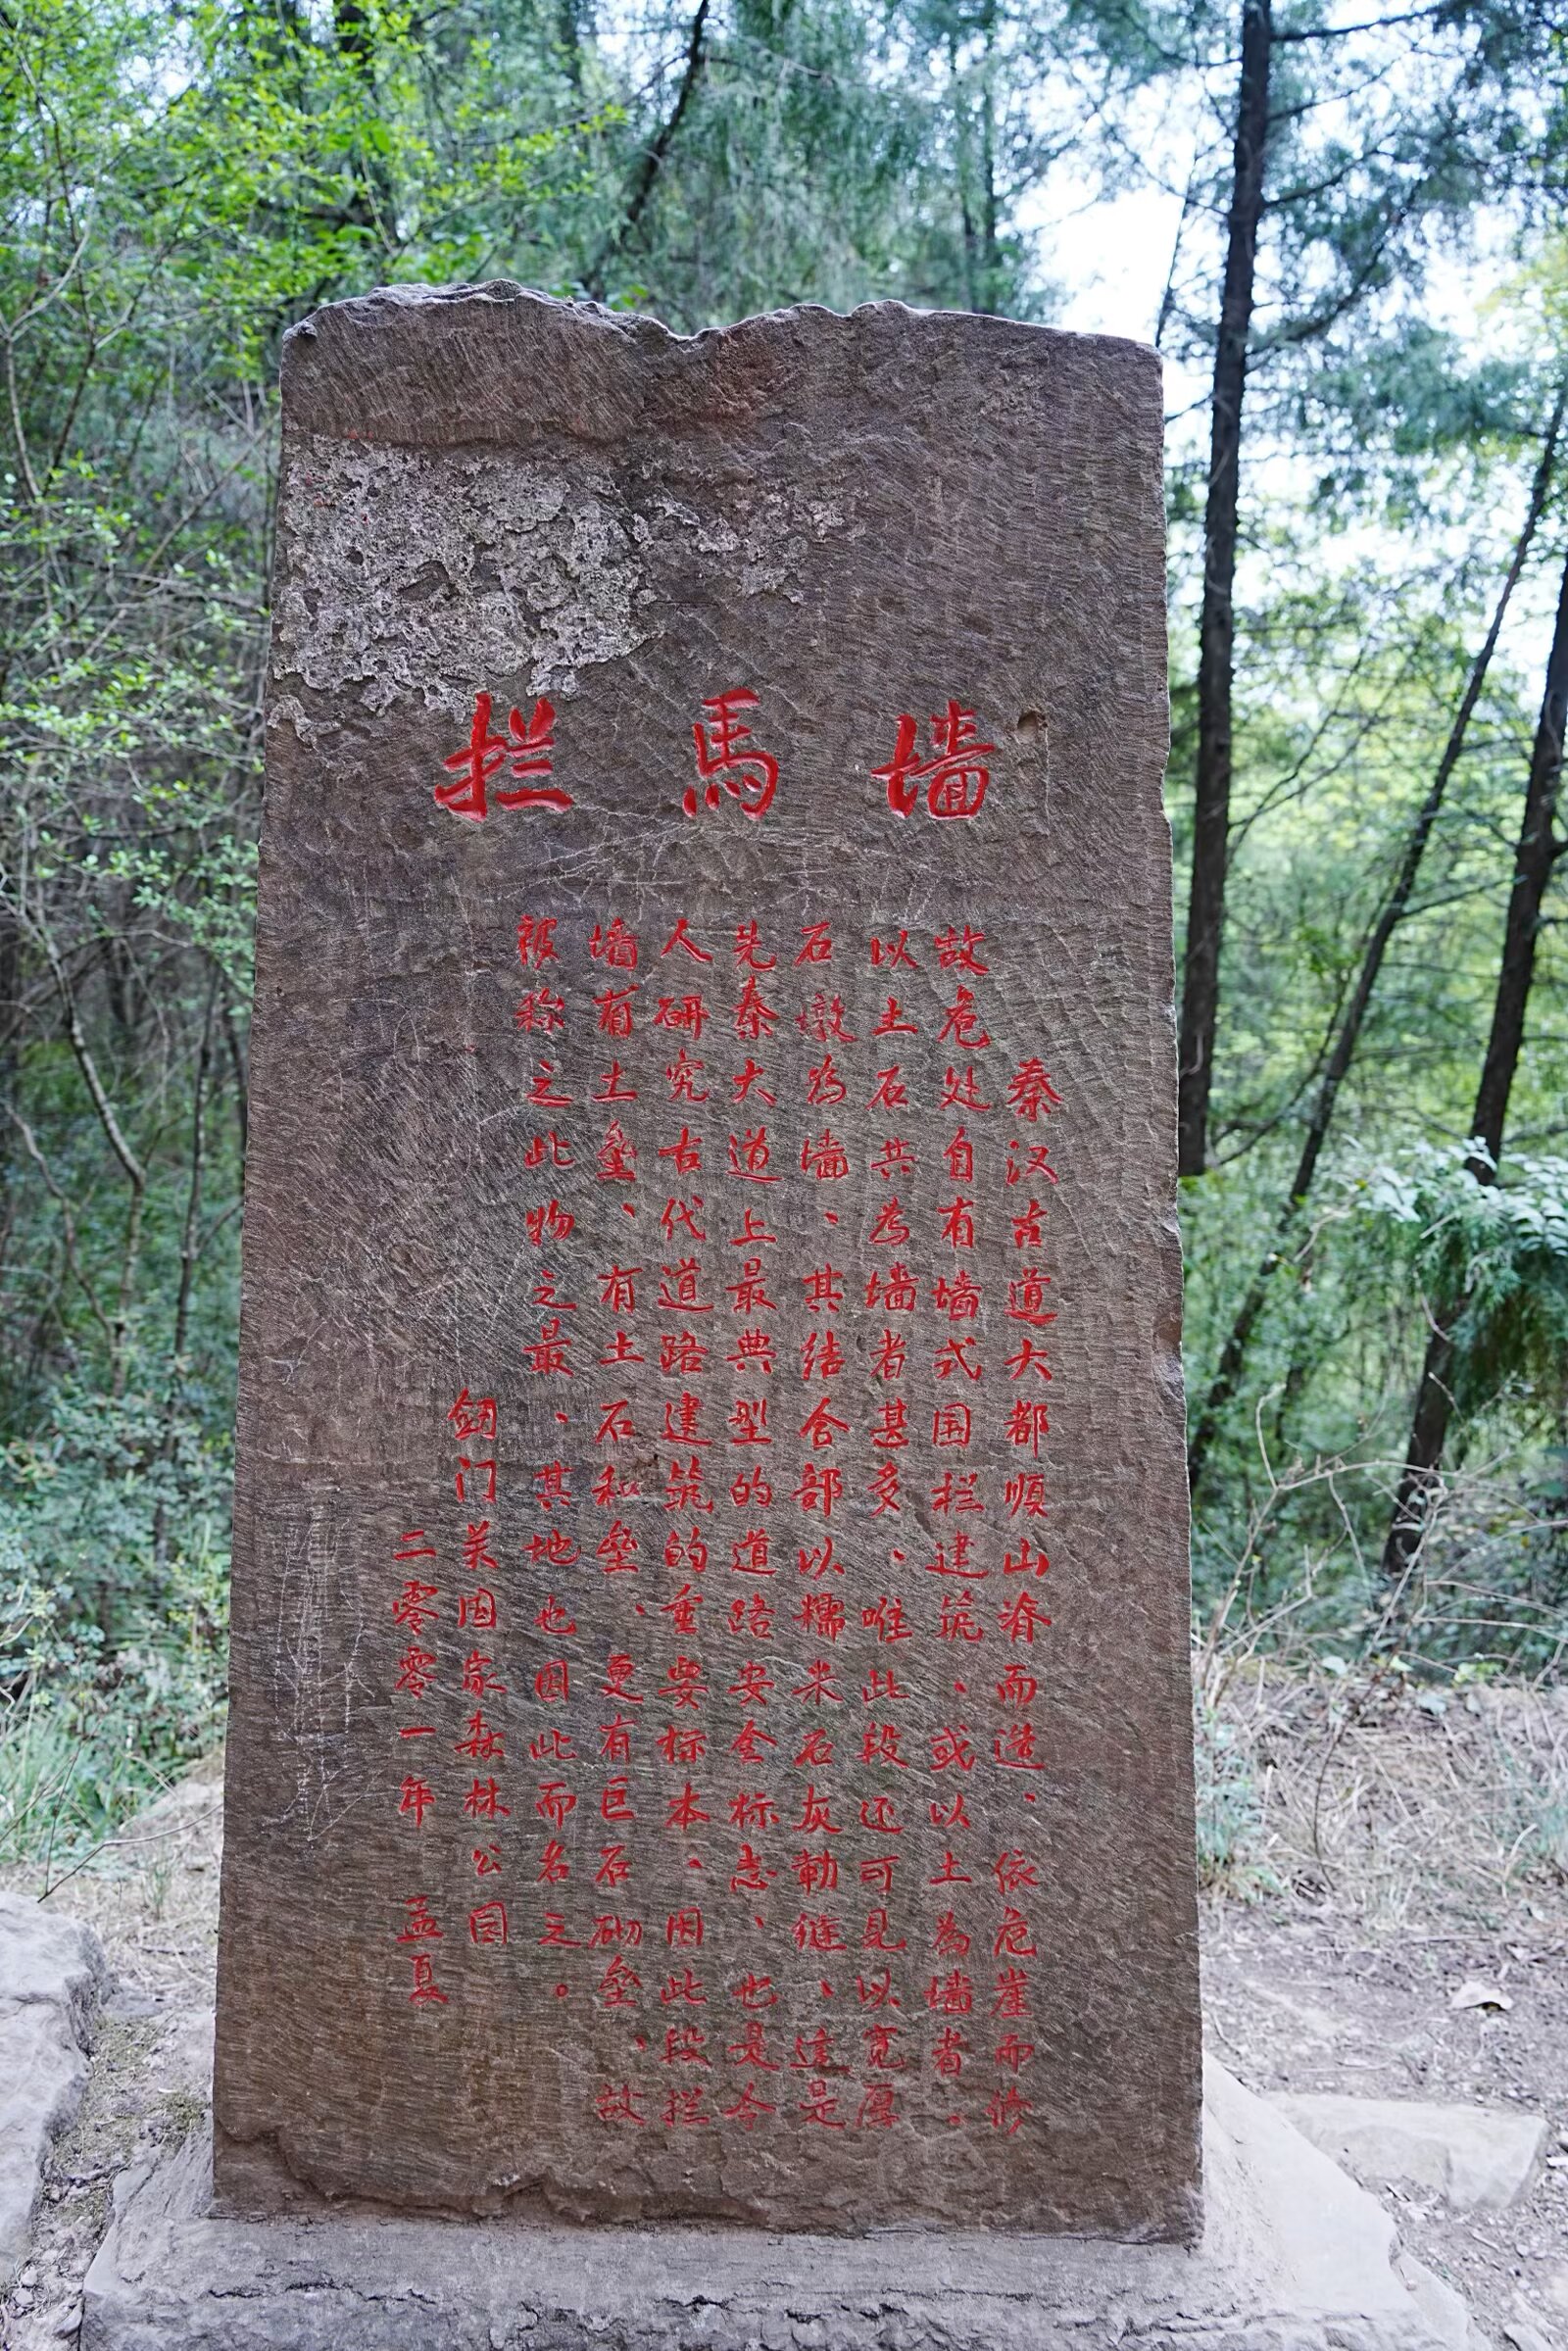 拦馬墙
秦汉古道大都顺山脊而造、依危崖而修
故危处自有墙式围栏建筑、或以土為墙者。
以土石共為墙者甚多、唯此段还可见以宽厚
石墩為墙、其结合部以糯米石灰勒缝、這是
先秦大道上最典型的道路安全标志、也是令
人研究古代道路建筑的重要标本、因此段拦
墙有土垒、有土石和垒、更有巨石砌垒、故
被称之此物之最、其地也因此而名之。
劍门关国家森林公园
二零零一年 孟夏